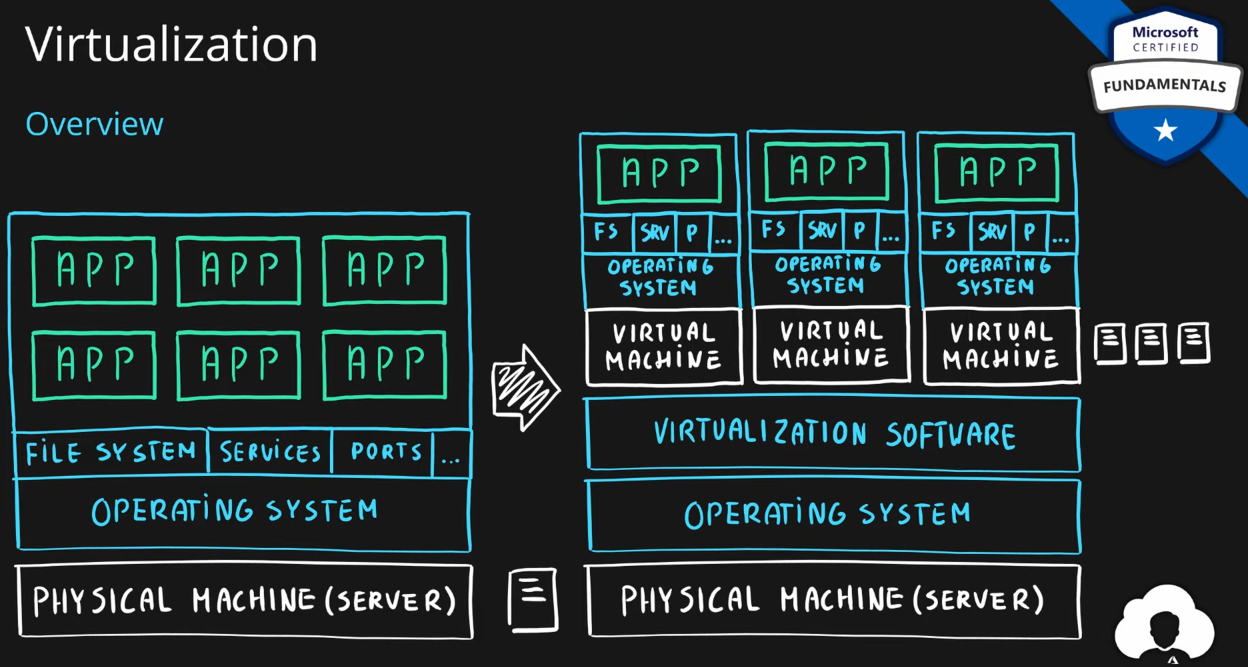 Virtualization
Overview
Microsoft
CERTIFIED
FUNDAMENTALS
APP APP APP
APP APP APP
FILE SYSTEM SERVICES PORTS ...
OPERATING SYSTEM
PHYSICAL MACHINE (SERVER)
APP APP APP
FS SRV P ... FS SRV P ... FS SRV P ...
OPERATING SYSTEM
OPERATING SYSTEM
OPERATING SYSTEM
VIRTUAL MACHINE
VIRTUAL MACHINE
VIRTUAL MACHINE
VIRTUALIZATION SOFTWARE
OPERATING SYSTEM
PHYSICAL MACHINE (SERVER)